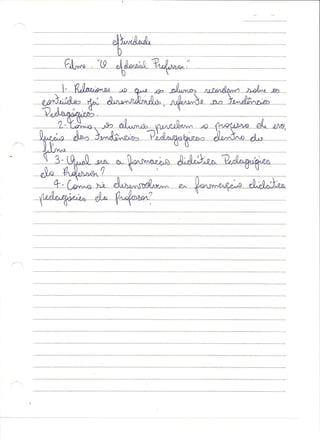 Atividade
Filme "O Adorável Professor"
1- Relacione o que os alunos recordam sobre os
conteúdos já desenvolvidos, referente as Tendências
Pedagógicas.
2- Como os alunos percebem o processo de evo
lução das Tendências Pedagogicas dentro do
filme
3- Qual era a formação didática Pedagógica
do Professor?
4- Como se desenvolvem a formação didática
pedagógica do Professor?